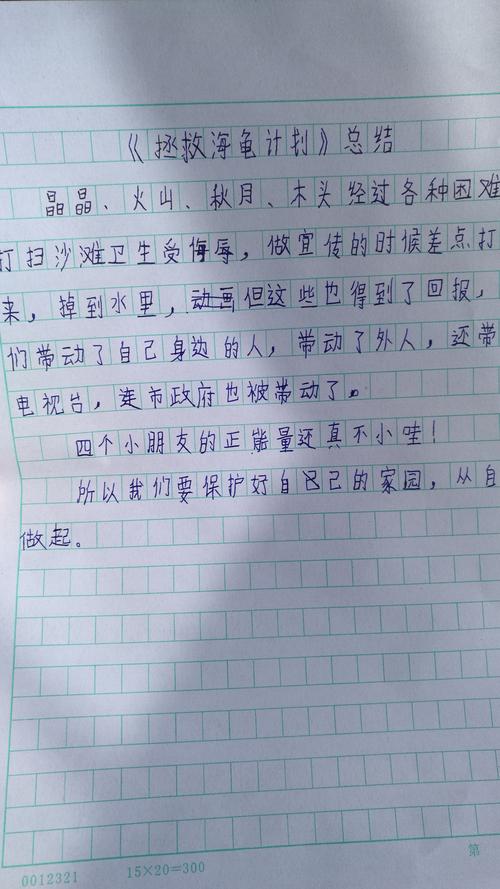 《拯救海龟计划》总结
晶晶、火山、秋月、木头经过各种困难
打扫沙滩卫生受侮辱，做宣传的时候差点打
来，掉到水里，动画但这些也得到了回报，
们带动了自己身边的人，带动了外人，还带
电视台，连市政府也被带动了。
四个小朋友的正能量还真不小哇！
所以我们要保护好自己己的家园，从自
做起。
第
0012321 15×20=300